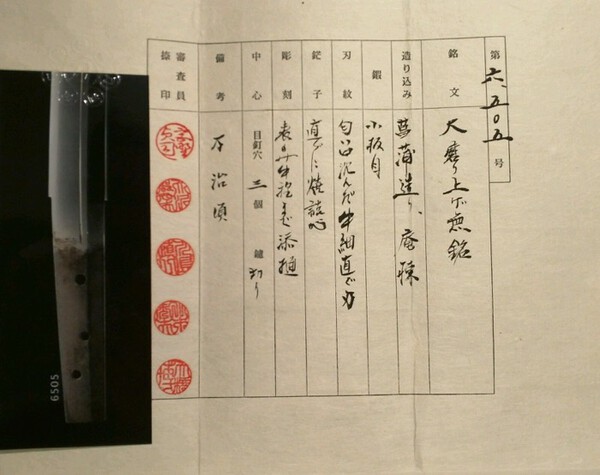 第六、五〇五号
銘文 大磨り上げ無銘
造り込み 菖蒲造り、庵棟
鍛 小板目
刃紋 匂口沈んだ中細直ぐ刃
鋩子 直ぐに焼詰心
彫刻 表に
中心 目釘穴 三個 鑢 切り
備考 万治頃
審査員捺印
6505